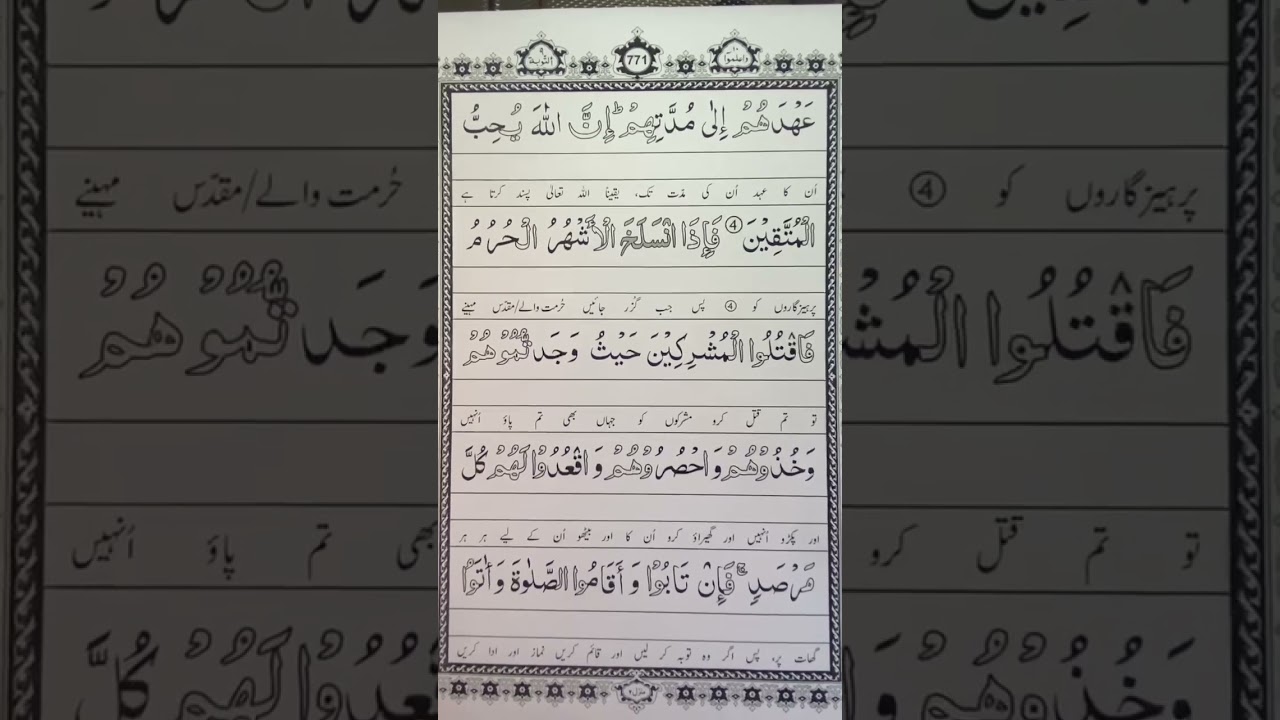 التوبة ٩
771
واعلموا ١٠
عَهْدَهُمْ إِلٰى مُدَّتِهِمْ ؕ إِنَّ اللّٰهَ يُحِبُّ
اُن کا عہد اُن کی مدت تک، یقیناً اللہ تعالیٰ پسند کرتا ہے
الْمُتَّقِيْنَ ④ فَإِذَا انْسَلَخَ الْأَشْهُرُ الْحُرُمُ
پرہیزگاروں کو ④ پس جب گزر جائیں حُرمت والے/مقدّس مہینے
فَاقْتُلُوا الْمُشْرِكِيْنَ حَيْثُ وَجَدْتُّمُوْهُمْ
تو تم قتل کرو مشرکوں کو جہاں بھی تم پاؤ اُنہیں
وَخُذُوْهُمْ وَاحْصُرُوْهُمْ وَاقْعُدُوْا لَهُمْ كُلَّ
اور پکڑو اُنہیں اور گھیراؤ کرو اُن کا اور بیٹھو اُن کے لیے ہر ہر
مَرْصَدٍ ۚ فَإِنْ تَابُوْا وَ أَقَامُوا الصَّلٰوةَ وَ اٰتَوُا
گھات پر، پس اگر وہ توبہ کر لیں اور قائم کریں نماز اور ادا کریں
منزل ٢